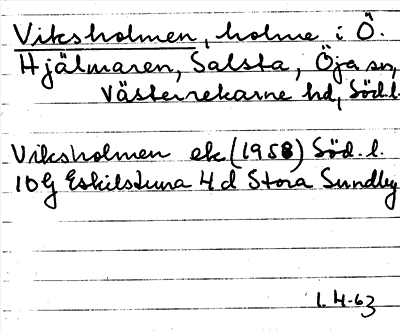 Viksholmen, holme i Ö.
Hjälmaren, Salsta, Öja sn,
Västerrekarne hd, Söd.l.
Viksholmen ek (1958) Söd. l.
10G Eskilstuna 4d Stora Sundby
1.4-63